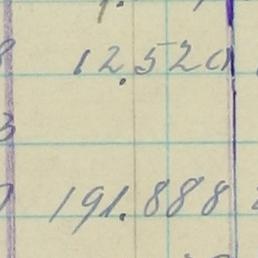 12.520
191.888